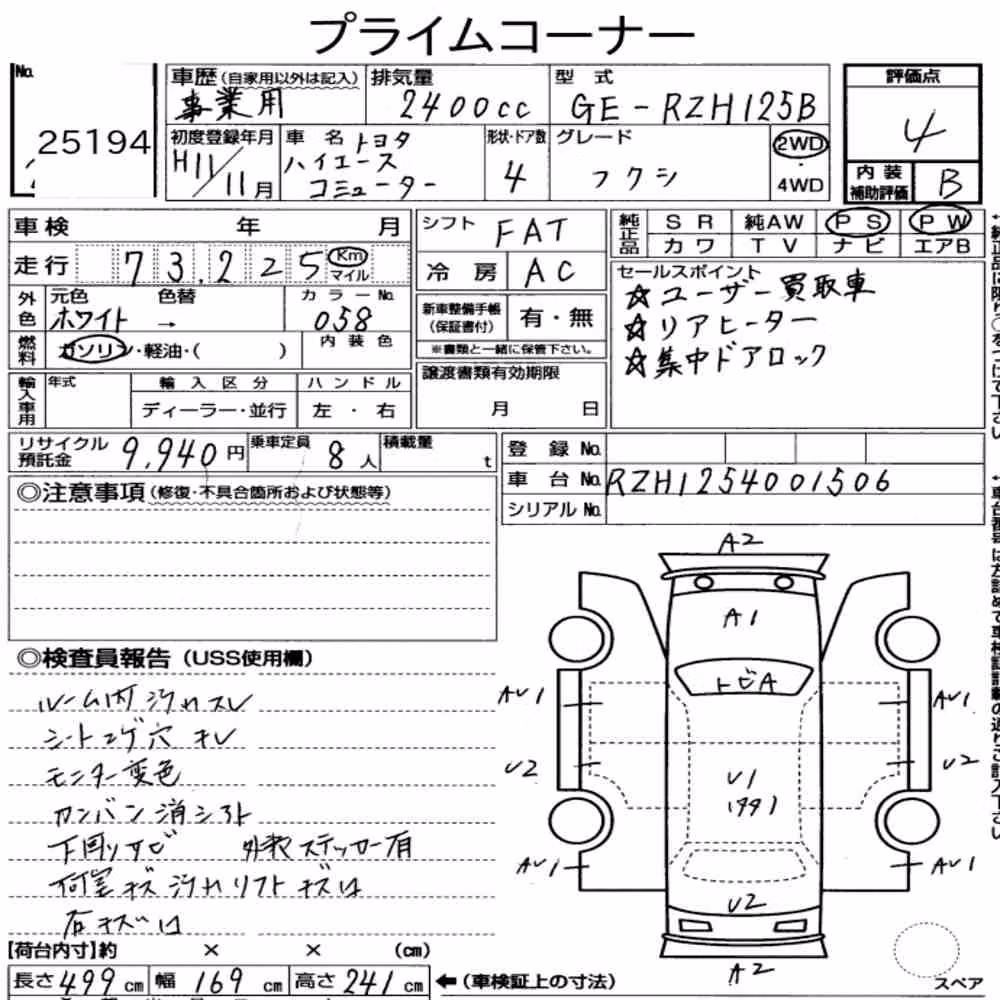 プライムコーナー
No. 25194
車歴 (自家用以外は記入) 事業用
排気量 2400cc
型式 GE-RZH125B
評価点 4
初度登録年月 H11/11月
車名 トヨタ
ハイエース
コミューター
形状・ドア数 4
グレード フクシ
2WD
・
4WD
内装
補助評価 B
車検 年 月
走行 73,225 Km
マイル
外色 元色 ホワイト → 色替
カラーNo. 058
内装色
燃料 ガソリン・軽油・( )
輸入車用 年式
輸入区分 ディーラー・並行
ハンドル 左・右
シフト FAT
冷房 AC
新車整備手帳
(保証書付) 有・無
※書類と一緒に保管下さい。
譲渡書類有効期限
月 日
純正品 SR 純AW PS PW
カワ TV ナビ エアB
セールスポイント
☆ユーザー買取車
☆リアヒーター
☆集中ドアロック
リサイクル
預託金 9,940円
乗車定員 8人
積載量 t
登録No.
車台No. RZH1254001506
シリアルNo.
◎注意事項 (修復・不具合箇所および状態等)
◎検査員報告 (USS使用欄)
ルーム内汚れスレ
シートコゲ穴 キレ
モニター変色
カンバン消シアト
下回リサビ 外装ステッカー有
荷室キズ汚れリフトキズ
A2
A1
トビA
AU1 AU1
U2 U2
U1
AU1 AU1
U2
A2
スペア
【荷台内寸】約 × × (cm)
長さ499cm 幅169cm 高さ241cm ←(車検証上の寸法)